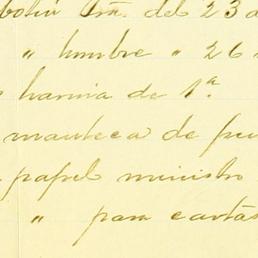 del 23 d
" hombre " 26
harina de 1ª
manteca de
papel ministro
" para cartas